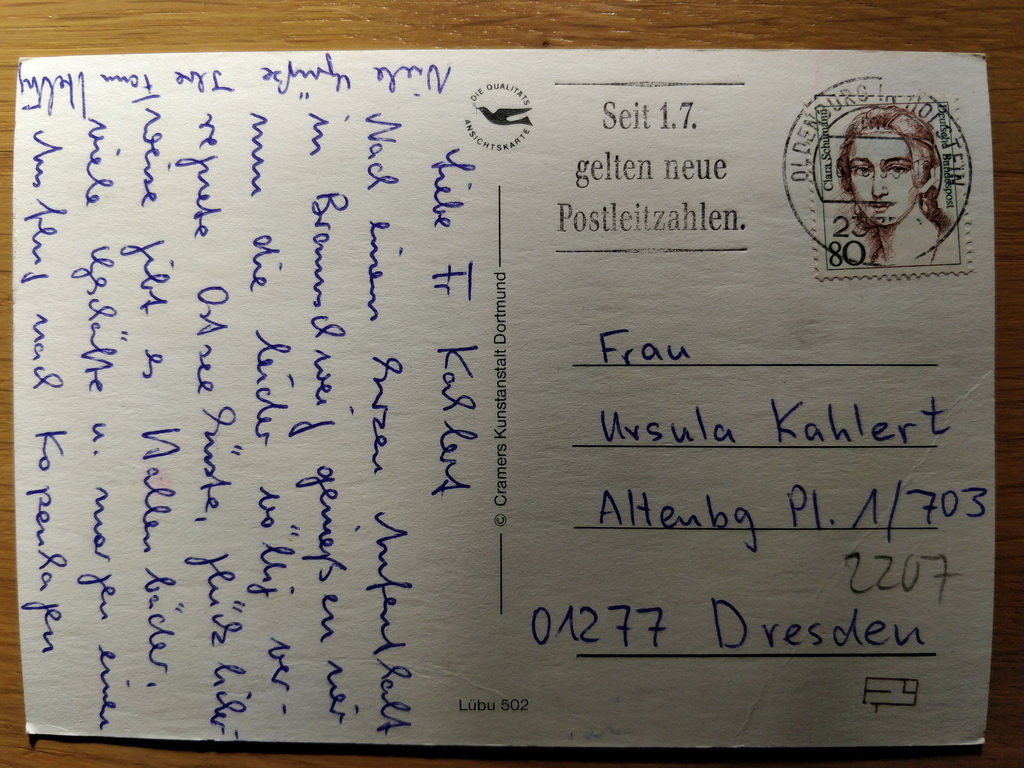 Liebe Fr Kahlert
Nach einem kurzen Aufenthalt
in Braunschweig genießen wir
nun die leider völlig ver-
regnete Ostseeküste, glücklicher-
weise gibt es Hallenbäder,
viele Geschäfte u. morgen einen
Ausflug nach Kopenhagen
Viele Grüße
Ihre Fam
DIE QUALITÄTS
ANSICHTSKARTE
© Cramers Kunstanstalt Dortmund
Lübu 502
Seit 1.7.
gelten neue
Postleitzahlen.
OLDENBURG IN HOLSTEIN
23
Clara Schumann
Deutsche Bundespost
80
Frau
Ursula Kahlert
Altenbg Pl. 1/703
2207
01277 Dresden